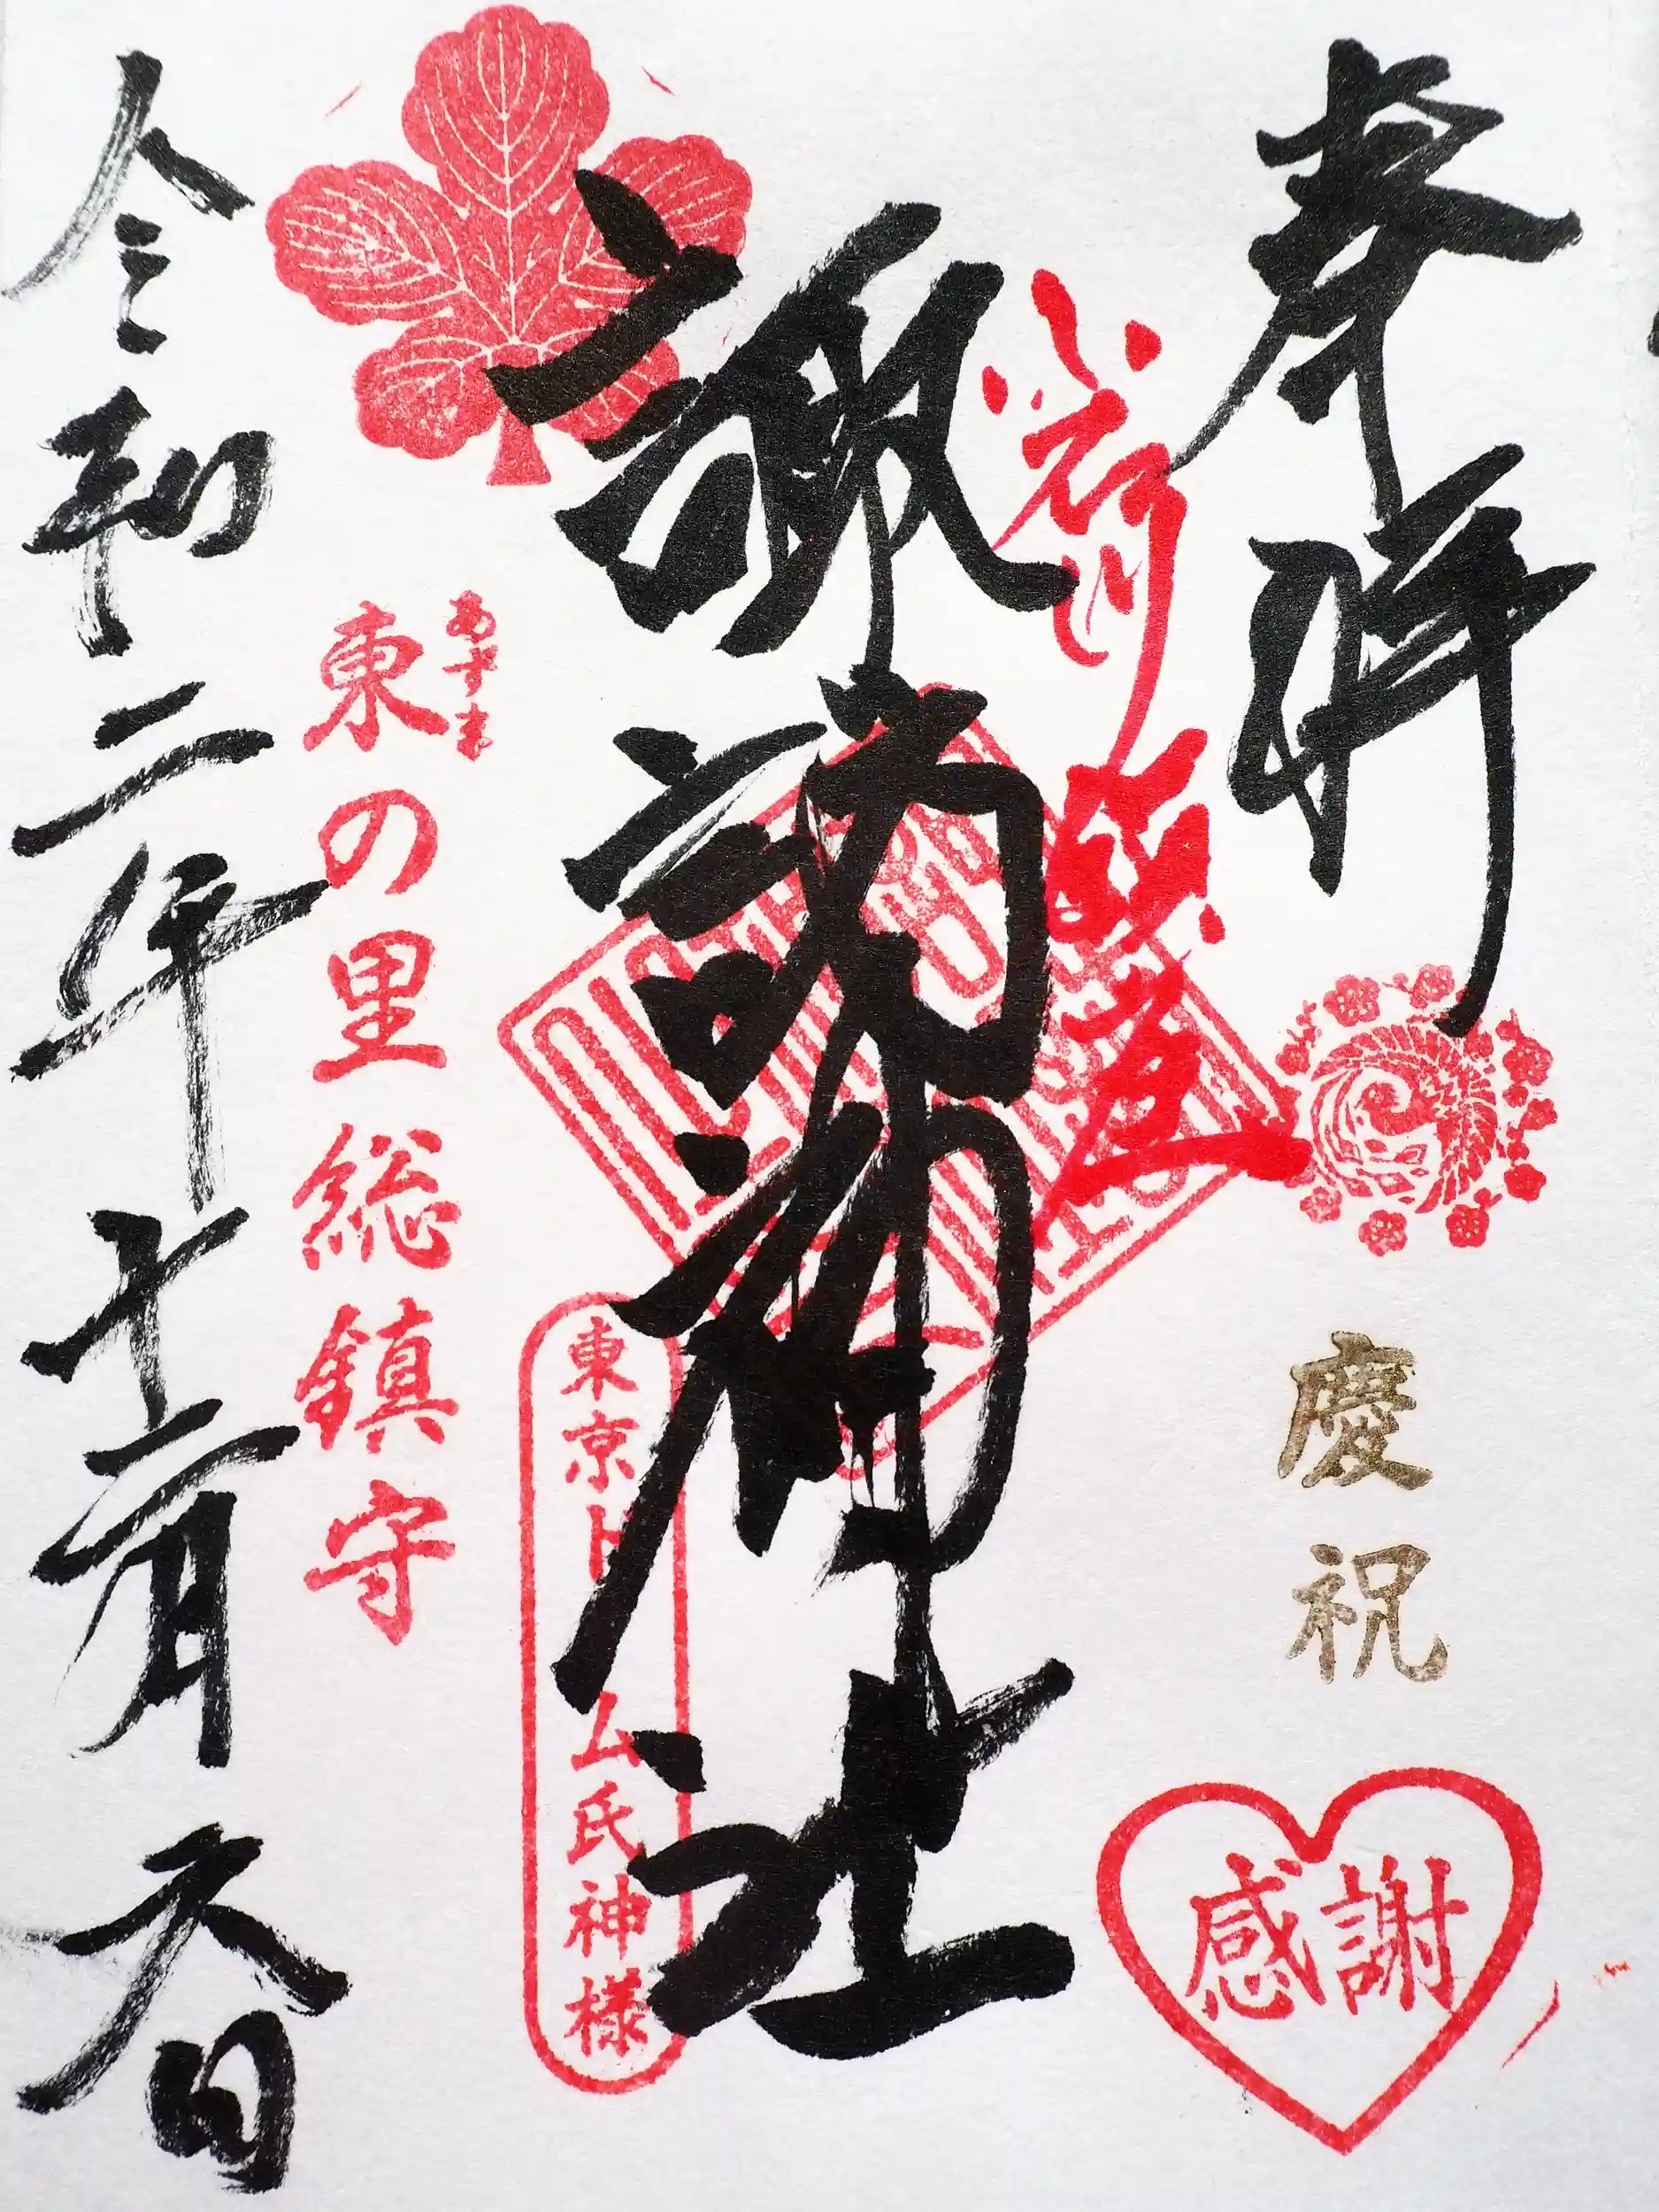 奉拝
慶祝
感謝
小石川
鎮座
諏訪神社
東京ドーム氏神様
あずま
東の里総鎮守
令和二年十二月
日